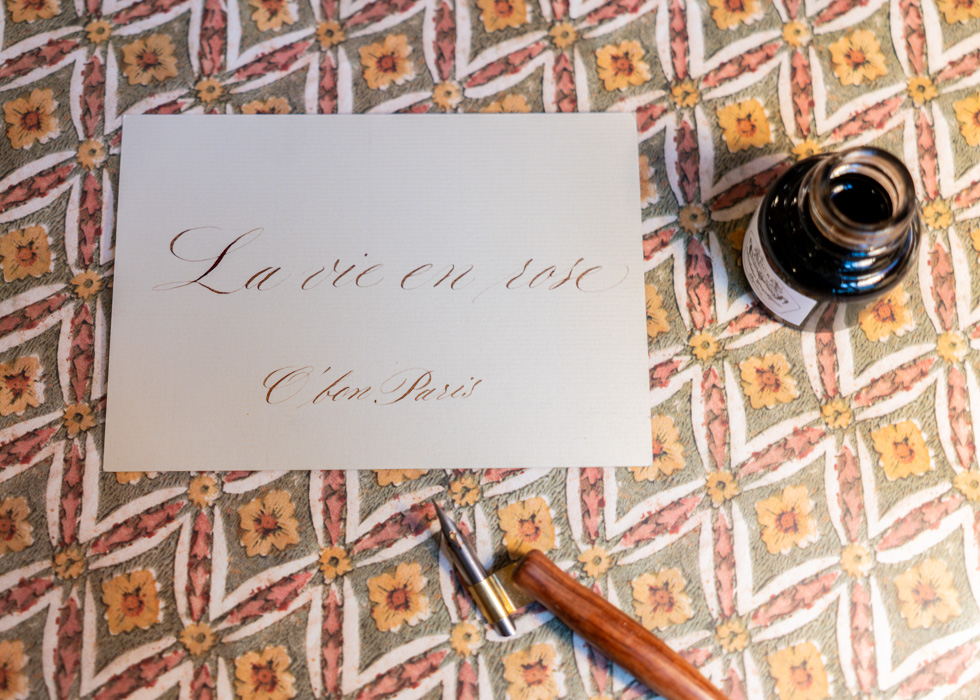 La vie en rose
O'bon Paris